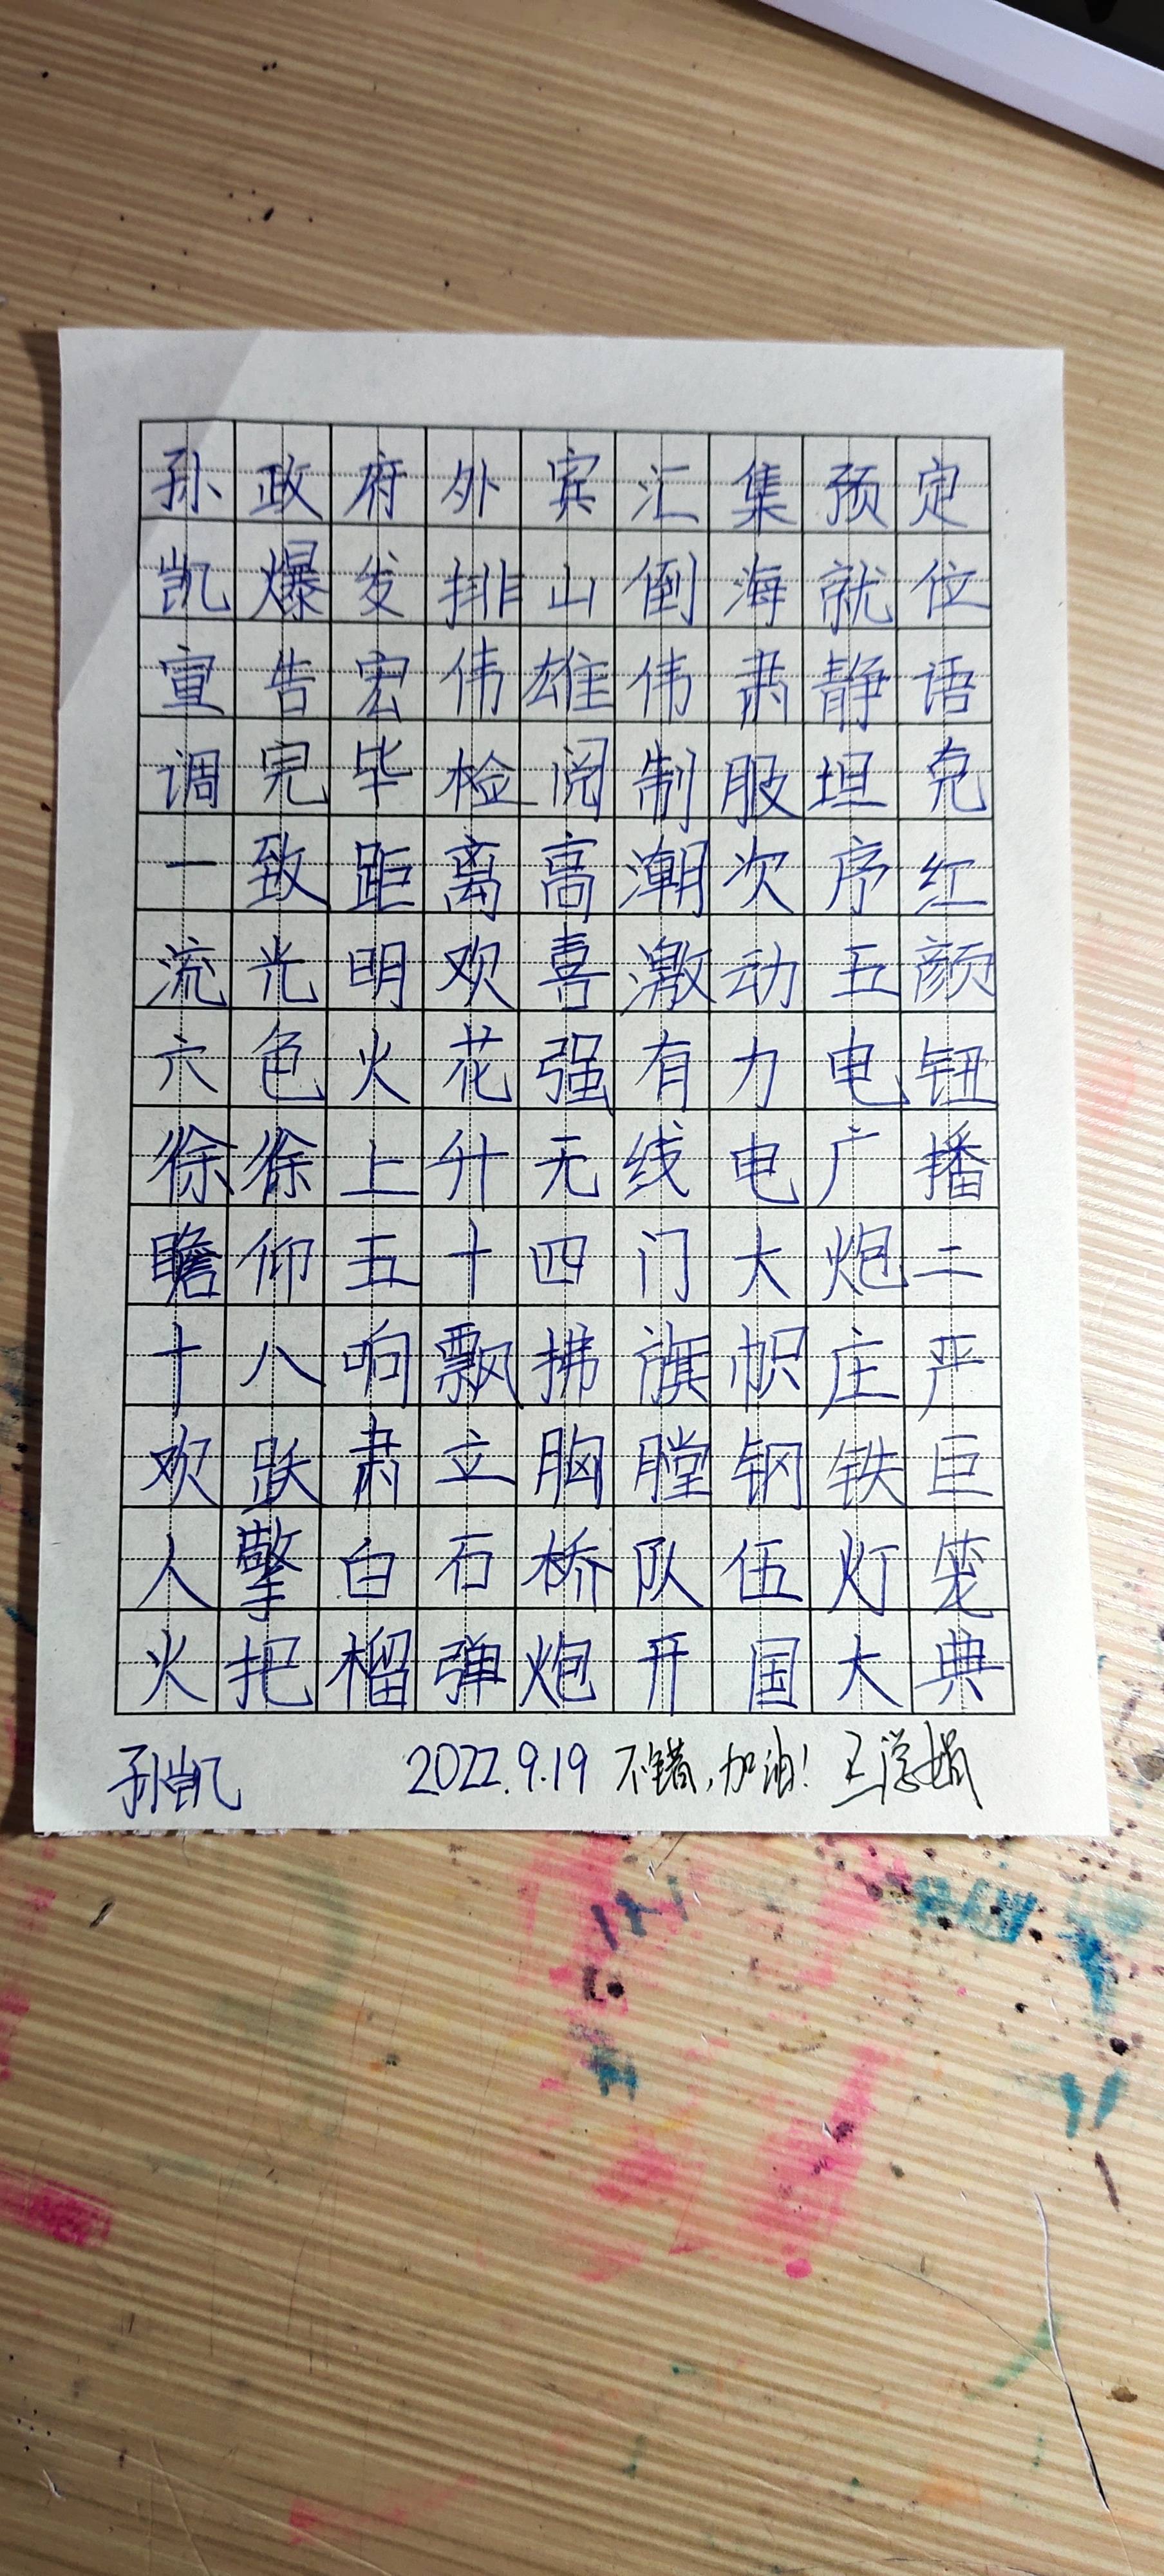 孙政府外宾汇集预定
凯爆发排山倒海就位
宣告宏伟雄伟肃静语
调完毕检阅制服坦克
一致距离高潮次序红
流光明欢喜激动五颜
六色火花强有力电钮
徐徐上升无线电广播
瞻仰五十四门大炮二
十八响飘拂旗帜庄严
欢跃肃立胸膛钢铁巨
人擎白石桥队伍灯笼
火把榴弹炮开国大典
孙凯 2022.9.19 不错,加油! 王学娟